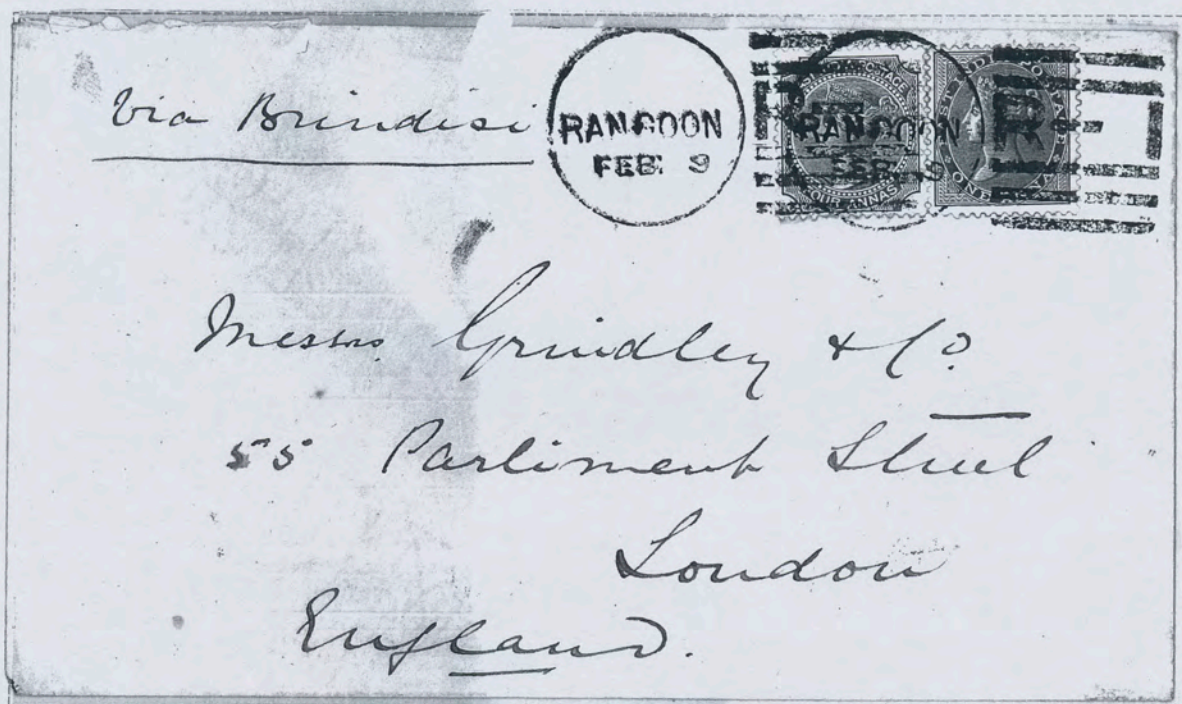 Via Brindisi
RANGOON
FEB. 9
RANGOON
FEB. 9
R
FOUR ANNAS
ONE
Messrs. Grindley & Co.
55 Parliment Street
London
England.